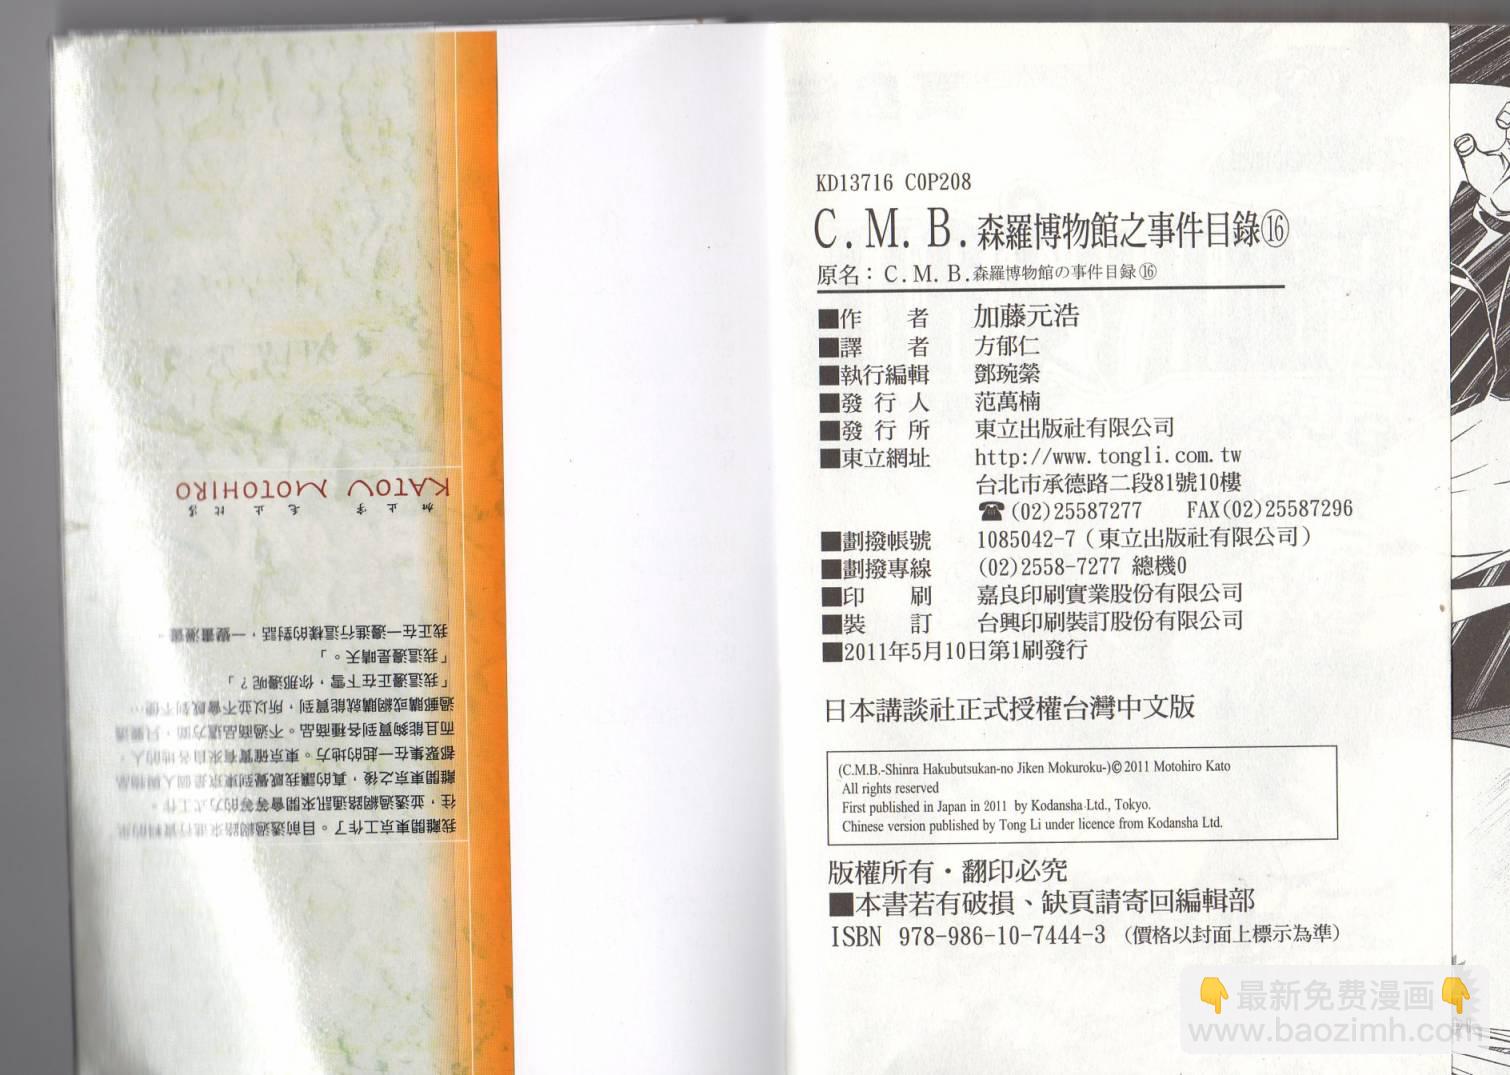 KD13716 C0P208
C.M.B.森羅博物館之事件目錄⑯
原名：C.M.B.森羅博物館の事件目録⑯
■作　者　加藤元浩
■譯　者　方郁仁
■執行編輯　鄧琬縈
■發行人　范萬楠
■發行所　東立出版社有限公司
■東立網址　http://www.tongli.com.tw
台北市承德路二段81號10樓
☎(02)25587277　FAX(02)25587296
■劃撥帳號　1085042-7（東立出版社有限公司）
■劃撥專線　(02)2558-7277 總機0
■印　刷　嘉良印刷實業股份有限公司
■裝　訂　台興印刷裝訂股份有限公司
■2011年5月10日第1刷發行
日本講談社正式授權台灣中文版
(C.M.B.-Shinra Hakubutsukan-no Jiken Mokuroku-)©2011 Motohiro Kato
All rights reserved
First published in Japan in 2011 by Kodansha Ltd., Tokyo.
Chinese version published by Tong Li under licence from Kodansha Ltd.
版權所有・翻印必究
■本書若有破損、缺頁請寄回編輯部
ISBN 978-986-10-7444-3（價格以封面上標示為準）
我離開東京工作了。目前透過網路來進行資料的
往，並透過網路通訊來開會等等的方式工作。
離開東京之後，真的讓我感覺到東京是個人與物品
都聚集在一起的地方。東京確實有來自各地的人，
而且能夠買到各種商品。不過商品這方面，只要透
過郵購或網購就能買到，所以並不會感到不便…
「我這邊正在下雪，你那邊呢？」
「我這邊是晴天。」
我正在一邊進行這樣的對話，一邊畫漫畫。
KATOU MOTOHIRO
👇最新免费漫画👇
www.baozimh.com